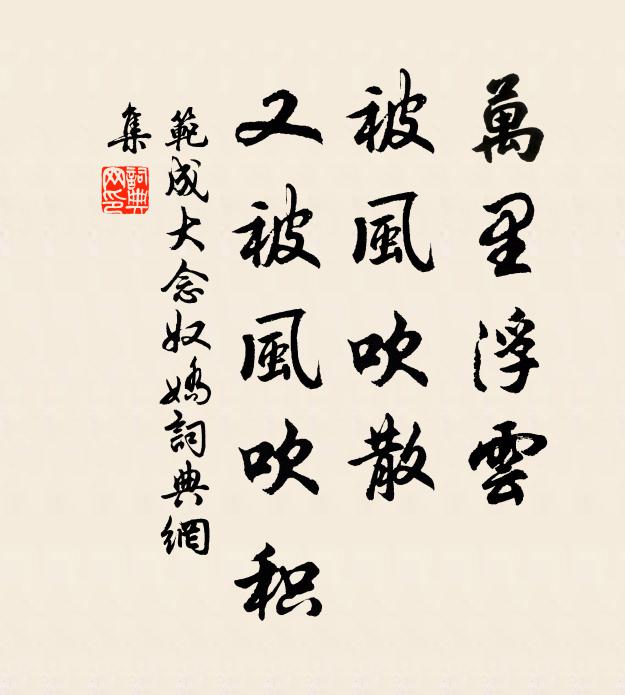 萬里浮雲
被風吹散
又被風吹积
範成大念奴嬌詞典網
集
詞典
网印